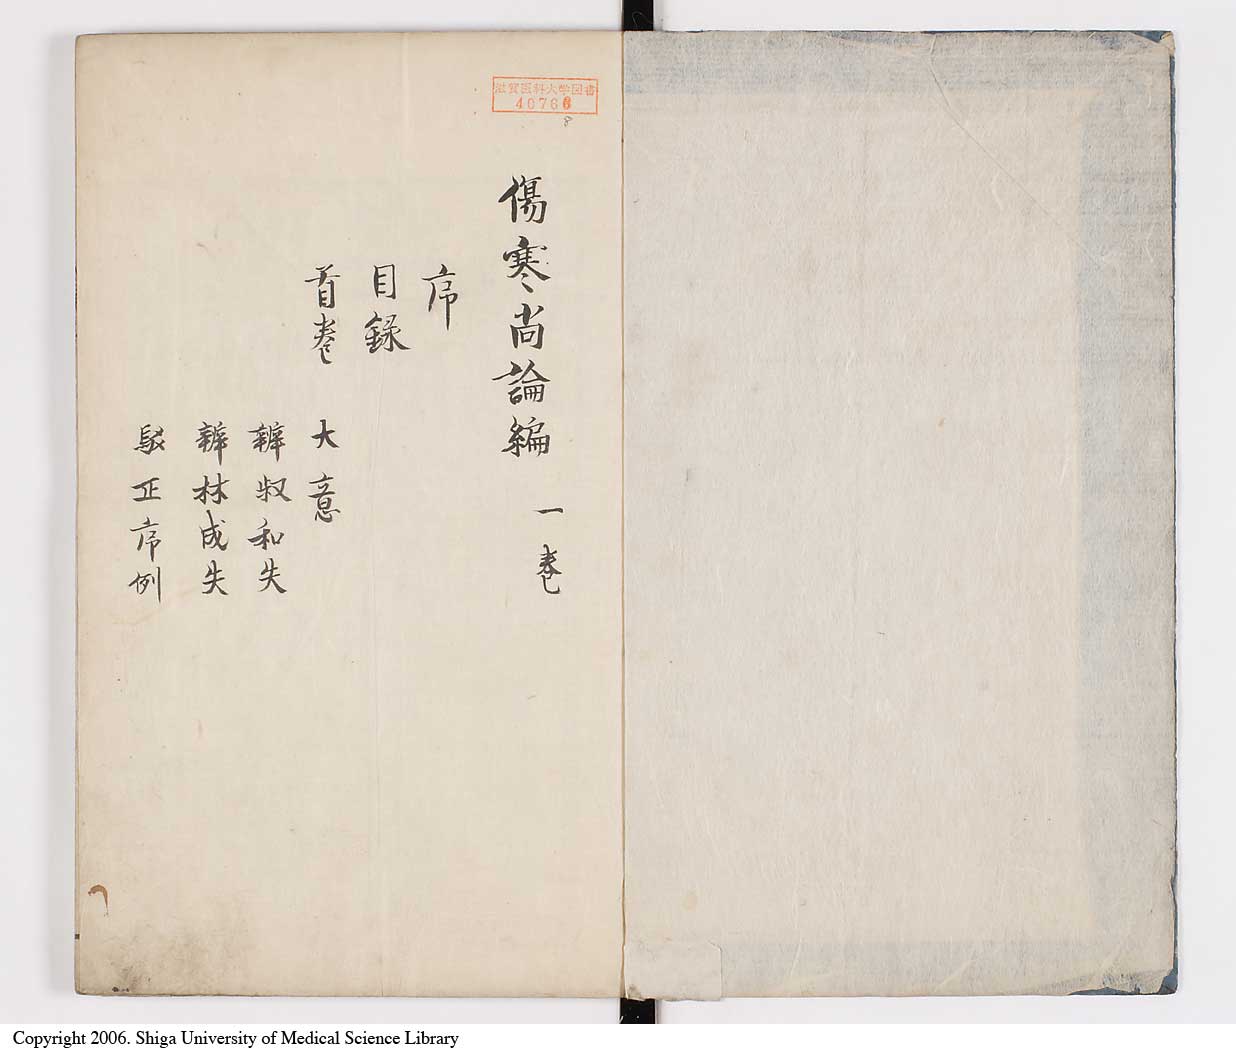 滋賀医科大学図書
40766
8
傷寒尚論編 一巻
序
目録
首巻 大意
辨叔和失
辨林成失
駁正序例
Copyright 2006. Shiga University of Medical Science Library